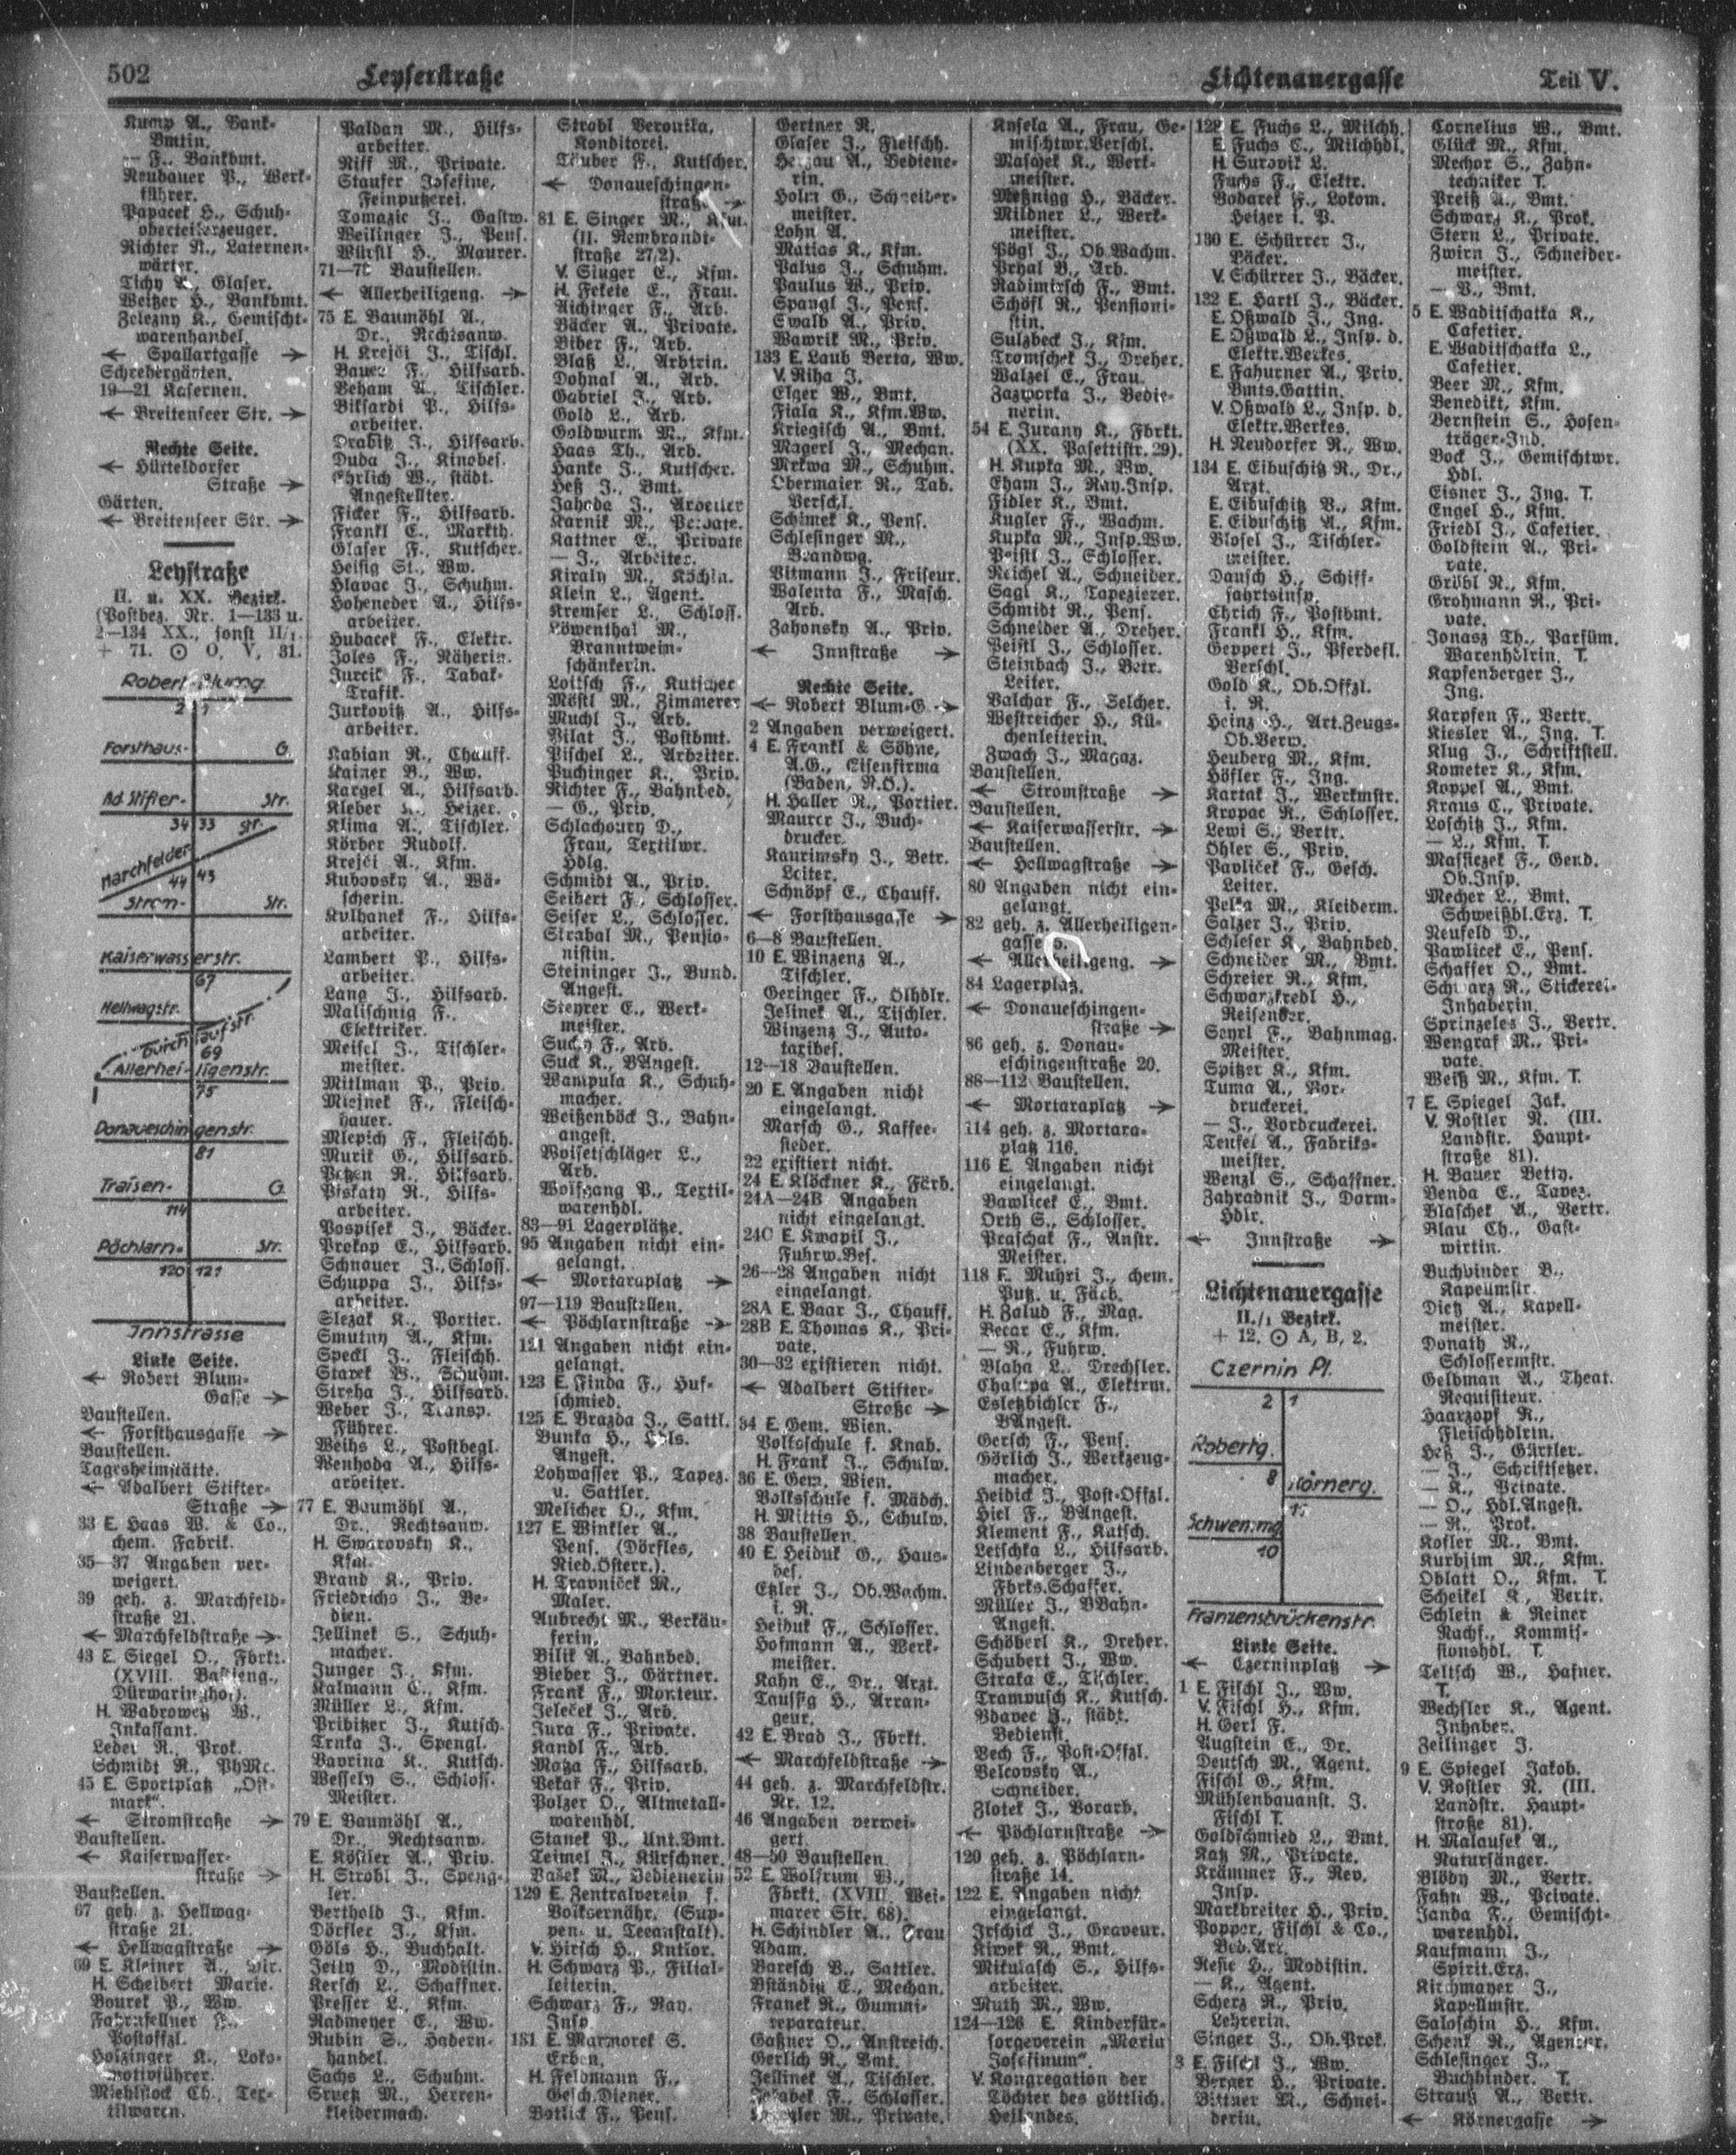 502
Leyserstraße
Lichtenauergasse
Teil V.
Kump A., Bank-
Bmtin.
— F., Bankbmt.
Neubauer P., Werk-
führer.
Papacek H., Schuh-
oberteilerzeuger.
Richter R., Laternen-
wärter.
Tichy , Glaser.
Weitzer H., Bankbmt.
Zelezny K., Gemischt-
warenhandel.
← Spallartgasse →
Schrebergärten.
19—21 Kasernen.
← Breitenseer Str. →
Rechte Seite.
← Hütteldorfer
Straße →
Gärten.
← Breitenseer Str. →
Leystraße
II. u. XX. Bezirk.
(Postbez. Nr. 1—133 u.
2—134 XX., sonst II/1.
+ 71. ⊙ O, V, 31.
Robert Blumg.
2 1
Forsthaus- G.
Ad. Stifter- Str.
34 33 Str.
Marchfelder
44 43
Strom- Str.
Kaiserwasserstr.
67
Hellwagstr.
Durchlaufstr.
69
Allerheiligenstr.
75
Donaueschingenstr.
81
Traisen- G.
114
Pöchlarn- Str.
120 121
Innstrasse
Linke Seite.
← Robert Blum-
Gasse →
Baustellen.
← Forsthausgasse →
Baustellen.
Tagesheimstätte.
← Adalbert Stifter-
Straße →
33 E. Haas W. & Co.,
chem. Fabrik.
35—37 Angaben ver-
weigert.
39 geh. z. Marchfeld-
straße 21.
← Marchfeldstraße →
43 E. Siegel O., Fbrkt.
(XVIII. Bastieng.,
Dürwaringhof).
H. Wabroweh W.,
Inkassant.
Leder R., Prok.
Schmidt R., PhMr.
45 E. Sportplatz „Ost-
mark“.
← Stromstraße →
Baustellen.
← Kaiserwasser-
straße →
Baustellen.
67 geh. z. Hellwag-
straße 21.
← Hellwagstraße →
69 E. Kleiner A., Dir.
H. Scheibert Marie.
Bourek P., Ww.
Fahrafellner
Postoffzl.
Holzinger K., Loko-
motivführer.
Miehlstock Ch., Tex-
tilwaren.
Paldan M., Hilfs-
arbeiter.
Riff M., Private.
Staufer Josefine,
Feinputzerei.
Tomazic J., Gastw.
Weilinger J., Pens.
Würstl H., Maurer.
71—7 Baustellen.
← Allerheiligeng. →
75 E. Baumöhl A.,
Dr., Rechtsanw.
H. Krejči J., Tischl.
Bauer F., Hilfsarb.
Beham A., Tischler.
Biksardi P., Hilfs-
arbeiter.
Drabitz J., Hilfsarb.
Duda J., Kinobes.
Ehrlich W., städt.
Angestellter.
Ficker F., Hilfsarb.
Frankl E., Markth.
Glaser F., Kutscher.
Heisig St., Ww.
Hlavac J., Schuhm.
Hoheneder A., Hilfs-
arbeiter.
Hubacek F., Elektr.
Joles F., Näherin.
Jurcik F., Tabak-
Trafik.
Jurkovitz A., Hilfs-
arbeiter.
Kabian R., Chauff.
Kainer B., Ww.
Kargel A., Hilfsarb.
Kleber , Heizer.
Klima A., Tischler.
Körber Rudolf.
Krejči A., Kfm.
Kubovsky A., Wä-
scherin.
Kulhanek F., Hilfs-
arbeiter.
Lambert P., Hilfs-
arbeiter.
Lang J., Hilfsarb.
Malischnig F.,
Elektriker.
Meisel J., Tischler-
meister.
Mitlman P., Priv.
Miejnek F., Fleisch-
hauer.
Mlepich F., Fleischh.
Murik G., Hilfsarb.
Petzen R., Hilfsarb.
Piskaty R., Hilfs-
arbeiter.
Pospisek J., Bäcker.
Prokop E., Hilfsarb.
Schnauer J., Schloss.
Schuppa J., Hilfs-
arbeiter.
Slezak K., Portier.
Smutny A., Kfm.
Speckl J., Fleischh.
Starek W., Schuhm.
Streha J., Hilfsarb.
Weber J., Transp.
Führer.
Weihs L., Postbegl.
Wenhoda A., Hilfs-
arbeiter.
77 E. Baumöhl A.,
Dr., Rechtsanw.
H. Swarovsky K.,
Kfm.
Brand K., Priv.
Friedrichs J., Be-
dien.
Jellinek S., Schuh-
macher.
Junger J., Kfm.
Kalmann C., Kfm.
Müller L., Kfm.
Pribitzer J., Kutsch.
Trnka J., Spengl.
Vavrina K., Kutsch.
Wessely S., Schloss.
Meister.
79 E. Baumöhl A.,
Dr., Rechtsanw.
E. Köstler A., Priv.
H. Strobl J., Speng-
ler.
Berthold J., Kfm.
Dörfler J., Kfm.
Göls H., Buchhalt.
Jeity D., Modistin.
Kersch L., Schaffner.
Presser L., Kfm.
Radmeyer E., Ww.
Rubin S., Hadern-
handel.
Sachs L., Schuhm.
Sruetz M., Herren-
kleidermach.
Strobl Veronika,
Konditorei.
Täuber F., Kutscher.
← Donaueschingen-
straße →
81 E. Singer M., Kfm.
(II. Rembrandt-
straße 27/2).
V. Singer E., Kfm.
H. Fekete E., Frau.
Aichinger F., Arb.
Bäcker A., Private.
Biber F., Arb.
Blaß L., Arbtrin.
Dohnal A., Arb.
Gabriel J., Arb.
Gold L., Arb.
Goldwurm M., Kfm.
Haas Th., Arb.
Hanke J., Kutscher.
Heß J., Bmt.
Jahoda J., Arbeiter
Karnik M., Private.
Kattner E., Private
— J., Arbeiter.
Kiraly M., Köchin.
Klein L., Agent.
Kremser L., Schloss.
Löwenthal M.,
Branntwein-
schänkerin.
Loitsch F., Kutscher
Möstl M., Zimmerer
Muchl J., Arb.
Pilat J., Postbmt.
Pischel L., Arbeiter.
Puchinger K., Priv.
Richter F., Bahnbed.
— G., Priv.
Schlachoury D.,
Frau, Textilwr.
Hdlg.
Schmidt A., Priv.
Seibert F., Schlosser.
Seiser L., Schlosser.
Strabal M., Pensio-
nistin.
Steininger J., Bund.
Angest.
Steyrer E., Werk-
meister.
Suchy F., Arb.
Suck K., BAngest.
Wampula K., Schuh-
macher.
Weißenböck J., Bahn-
angest.
Woisetschläger L.,
Arb.
Wolfgang P., Textil-
warenhdl.
83—91 Lagerplätze.
95 Angaben nicht ein-
gelangt.
← Mortaraplatz →
97—119 Baustellen.
← Pöchlarnstraße →
121 Angaben nicht ein-
gelangt.
123 E. Finda F., Huf-
schmied.
125 E. Brazda J., Sattl.
Bunka H., Göls.
Angest.
Lohwasser P., Tapez.
u. Sattler.
Melicher O., Kfm.
127 E. Winkler A.,
Pens. (Dörfles,
Nied.Österr.).
H. Travniček M.,
Maler.
Aubrecht M., Verkäu-
ferin.
Bilik A., Bahnbed.
Bieber J., Gärtner.
Frank F., Monteur.
Jeleček J., Arb.
Jura F., Private.
Kandl F., Arb.
Matza F., Hilfsarb.
Pekar F., Priv.
Polzer O., Altmetall-
warenhdl.
Stanek P., Unt.Bmt.
Teimel J., Kürschner.
Vasek M., Bedienerin
129 E. Zentralverein f.
Volksernähr. (Sup-
pen- u. Teeanstalt).
V. Hirsch H., Kntlor.
H. Schwarz P., Filial-
leiterin.
Schwarz F., Ray.
Insp.
131 E. Marmorek S.
Erben.
H. Feldmann F.,
Gesch.Diener.
Botlick F., Pens.
Gertner R.
Glaser J., Fleischh.
Herzau A., Bediene-
rin.
Holm G., Schneider-
meister.
Lohn A.
Matias K., Kfm.
Palus J., Schuhm.
Paulus W., Priv.
Spangl J., Pens.
Swalb A., Priv.
Wawrik M., Priv.
133 E. Laub Berta, Ww.
V. Riha J.
Elger W., Bmt.
Fiala K., Kfm.Ww.
Kriegisch A., Bmt.
Magerl J., Mechan.
Mrkwa M., Schuhm.
Obermaier R., Tab.
Verschl.
Schimek K., Pens.
Schlesinger M.,
Brandwg.
Vitmann J., Friseur.
Walenta F., Masch.
Arb.
Zahonsky A., Priv.
← Innstraße →
Rechte Seite.
← Robert Blum-G. →
2 Angaben verweigert.
4 E. Frankl & Söhne,
A.G., Eisenfirma
(Baden, N.Ö.).
H. Haller R., Portier.
Maurer J., Buch-
drucker.
Kaurimsky J., Betr.
Leiter.
Schnöpf E., Chauff.
← Forsthausgasse →
6—8 Baustellen.
10 E. Winzenz A.,
Tischler.
Geringer F., Ölhdlr.
Jelinek A., Tischler.
Winzenz J., Auto-
taxibes.
12—18 Baustellen.
20 E. Angaben nicht
eingelangt.
Marsch G., Kaffee-
sieder.
22 existiert nicht.
24 E. Klöckner K., Färb.
24A—24B Angaben
nicht eingelangt.
24C E. Kwapil J.,
Fuhrw.Bes.
26—28 Angaben nicht
eingelangt.
28A E. Baar J., Chauff.
28B E. Thomas K., Pri-
vate.
30—32 existieren nicht.
← Adalbert Stifter-
Straße →
34 E. Gem. Wien.
Volksschule f. Knab.
H. Frank J., Schulw.
36 E. Gem. Wien.
Volksschule f. Mädch.
H. Mittis H., Schulw.
38 Baustellen.
40 E. Heiduk G., Haus-
bes.
Etzler J., Ob.Wachm.
i. R.
Heiduk F., Schlosser.
Hofmann A., Werk-
meister.
Kahn E., Dr., Arzt.
Taussig H., Arran-
geur.
42 E. Brad J., Fbrkt.
← Marchfeldstraße →
44 geh. z. Marchfeldstr.
Nr. 12.
46 Angaben verwei-
gert.
48—50 Baustellen.
52 E. Wolfrum W.,
Fbrkt. (XVIII. Wei-
marer Str. 68).
H. Schindler A., Frau
Adam.
Baresch B., Sattler.
Bständig E., Mechan.
Franek R., Gummi-
reparateur.
Gaßner O., Anstreich.
Gerlich R., Bmt.
Jellinek A., Tischler.
Jerabek F., Schlosser.
M., Private.
Knsela A., Frau, Ge-
mischtwr.Verschl.
Maschek K., Werk-
meister.
Metznigg H., Bäcker.
Mildner L., Werk-
meister.
Pögl J., Ob.Wachm.
Pryhal B., Arb.
Radimirsch F., Bmt.
Schösl R., Pensioni-
stin.
Sulzbeck J., Kfm.
Tromschek J., Dreher.
Walzel E., Frau.
Zazworka J., Bedie-
nerin.
54 E. Jurany K., Fbrkt.
(XX. Pasettistr. 29).
H. Kupka M., Ww.
Eham J., Ray.Insp.
Fidler K., Bmt.
Kugler F., Wachm.
Kupka M., Insp.Ww.
Peistl J., Schlosser.
Reichel A., Schneider.
Sagl K., Tapezierer.
Schmidt R., Pens.
Schneider A., Dreher.
Peistl J., Schlosser.
Steinbach J., Betr.
Leiter.
Valchar F., Selcher.
Westreicher H., Kü-
chenleiterin.
Zwach J., Magaz.
Baustellen.
← Stromstraße →
Baustellen.
← Kaiserwasserstr. →
Baustellen.
← Hellwagstraße →
80 Angaben nicht ein-
gelangt.
82 geh. z. Allerheiligen-
gasse
← Allerheiligeng. →
84 Lagerplatz.
← Donaueschingen-
straße →
86 geh. z. Donau-
eschingenstraße 20.
88—112 Baustellen.
← Mortaraplatz →
114 geh. z. Mortara-
platz 116.
116 E. Angaben nicht
eingelangt.
Bawlicek E., Bmt.
Orth S., Schlosser.
Praschak F., Anstr.
Meister.
118 E. Muhri J., chem.
Putz. u. Färb.
H. Zalud F., Mag.
Becar E., Kfm.
— R., Fuhrw.
Blaha L., Drechsler.
Chalupa A., Elektrm.
Esletzbichler F.,
BAngest.
Gersch F., Pens.
Görlich J., Werkzeug-
macher.
Heidick J., Post-Offzl.
Hiel F., BAngest.
Klement F., Kutsch.
Letschka L., Hilfsarb.
Lindenberger J.,
Fbrks.Schaffer.
Müller J., BBahn-
Angest.
Schöberl K., Dreher.
Schubert J., Ww.
Straka E., Tischler.
Trampusch K., Kutsch.
Vdavec J., städt.
Bedienst.
Vech F., Post-Offzl.
Velcovsky A.,
Schneider.
Zlotek J., Vorarb.
← Pöchlarnstraße →
120 geh. z. Pöchlarn-
straße 14.
122 E. Angaben nicht
eingelangt.
Irschick J., Graveur.
Kiwek R., Bmt.
Mikulasch S., Hilfs-
arbeiter.
Muth M., Ww.
124—126 E. Kinderfür-
sorgeverein „Maria
Josefinum“.
V. Kongregation der
Töchter des göttlich.
Heilandes.
122 E. Fuchs L., Milchh.
E. Fuchs C., Milchhdl.
H. Surovik L.
Fuchs F., Elektr.
Vodarek F., Lokom.
Heizer i. P.
130 E. Schürrer J.,
Bäcker.
V. Schürrer J., Bäcker.
132 E. Hartl J., Bäcker.
E. Oßwald J., Ing.
E. Oßwald L., Insp. d.
Elektr.Werkes.
E. Fahurner A., Priv.
Bmts.Gattin.
V. Oßwald L., Insp. d.
Elektr.Werkes.
H. Neudorfer R., Ww.
134 E. Eibuschitz R., Dr.,
Arzt.
E. Eibuschitz B., Kfm.
E. Eibuschitz A., Kfm.
Blosel J., Tischler-
meister.
Dausch H., Schiff-
fahrtsinsp.
Ehrich F., Postbmt.
Frankl H., Kfm.
Geppert J., Pferdefl.
Verschl.
Gold K., Ob.Offzl.
i. R.
Heinz H., Art.Zeugs-
Ob.Verw.
Heuberg M., Kfm.
Höfler F., Ing.
Kartak J., Werkmstr.
Kropac R., Schlosser.
Lewi S., Vertr.
Öhler S., Priv.
Pavliček F., Gesch.
Leiter.
Pelka M., Kleiderm.
Salzer J., Priv.
Schleser K., Bahnbed.
Schneider M., Bmt.
Schreier R., Kfm.
Schwarzkredl H.,
Reisender.
Seyrl F., Bahnmag.
Meister.
Spitzer K., Kfm.
Tuma A., Vor-
druckerei.
— J., Vordruckerei.
Teufel A., Fabriks-
meister.
Wenzl S., Schaffner.
Zahradnik J., Dorm-
Hdlr.
← Innstraße →
Lichtenauergasse
II./1 Bezirk.
+ 12, ⊙ A, B, 2.
Czernin Pl.
2 1
Robertg.
8 Körnerg.
Schwemmg.
10
Franzensbrückenstr.
Linke Seite.
← Czerninplatz →
1 E. Fischl J., Ww.
V. Fischl H., Kfm.
H. Gerl F.
Augstein E., Dr.
Deutsch M., Agent.
Fischl G., Kfm.
Mühlenbauanst. J.
Fischl T.
Goldschmied L., Bmt.
Katz M., Private.
Krämmer F., Rev.
Insp.
Markbreiter H., Priv.
Popper, Fischl & Co.,
Bed.Art.
Resie H., Modistin.
— K., Agent.
Scherz R., Priv.
Lehrerin.
Singer J., Ob.Prok.
3 E. Fischl J., Ww.
Berger H., Private.
Bittner M., Schnei-
derin.
Cornelius W., Bmt.
Glück M., Kfm.
Mechor S., Zahn-
techniker T.
Preiß A., Bmt.
Schwarz K., Prok.
Stern L., Private.
Zwirn J., Schneider-
meister.
— B., Bmt.
5 E. Waditschatka K.,
Cafetier.
E. Waditschatka L.,
Cafetier.
Beer M., Kfm.
Benedikt, Kfm.
Bernstein S., Hosen-
träger-Ind.
Bock J., Gemischtwr.
Hdl.
Eisner J., Ing. T.
Engel H., Kfm.
Friedl J., Cafetier.
Goldstein A., Pri-
vate.
Gröbl R., Kfm.
Grohmann R., Pri-
vate.
Jonasz Th., Parfüm.
Warenhdlrin. T.
Kapfenberger J.,
Ing.
Karpfen F., Vertr.
Kiesler A., Ing. T.
Klug J., Schriftstell.
Kometer K., Kfm.
Koppel A., Bmt.
Kraus C., Private.
Loschitz J., Kfm.
— L., Kfm. T.
Massiczek F., Gend.
Ob.Insp.
Mecher L., Bmt.
Schweißbl.Erz. T.
Neufeld D.,
Pawlicek E., Pens.
Schaffer O., Bmt.
Schwarz R., Stickerei-
Inhaberin.
Sprinzeles J., Vertr.
Wengraf M., Pri-
vate.
Weiß M., Kfm. T.
7 E. Spiegel Jak.
V. Rostler R. (III.
Landstr. Haupt-
straße 81).
H. Bauer Betty.
Benda E., Tapez.
Blaschek A., Vertr.
Blau Ch., Gast-
wirtin.
Buchbinder B.,
Kapellmstr.
Dietz A., Kapell-
meister.
Donath R.,
Schlossermstr.
Gelbman A., Theat.
Requisiteur.
Haarzopf R.,
Fleischhdlrin.
Heß J., Gürtler.
— J., Schriftsetzer.
— K., Private.
— O., Hdl.Angest.
— R., Prok.
Kofler M., Bmt.
Kurbjim M., Kfm.
Oblatt O., Kfm. T.
Scheikel K., Vertr.
Schlein & Reiner
Nachf., Kommis-
sionshdl. T.
Teltsch W., Hafner.
T.
Wechsler K., Agent.
Inhaber.
Zeilinger J.
9 E. Spiegel Jakob.
V. Rostler R. (III.
Landstr. Haupt-
straße 81).
H. Malausek A.,
Natursänger.
Blödy M., Vertr.
Fahn W., Private.
Janda F., Gemischt-
warenhdl.
Kaufmann J.,
Spirit.Erz.
Kirchmayer J.,
Kapellmstr.
Saloschin H., Kfm.
Schenk R., Agentur.
Schlesinger J.,
Buchbinder. T.
Strauß A., Vertr.
← Körnergasse →